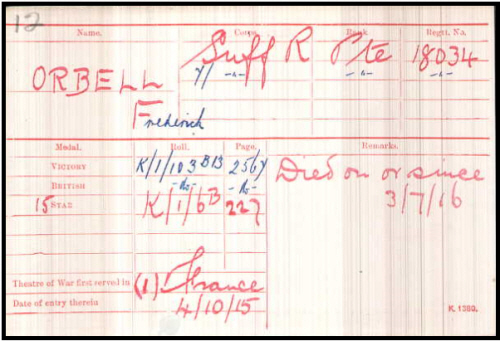 12
Name. Corps. Rank. Regtl. No.
ORBELL Suff R Pte 18034
7/ -"- -"- -"-
Frederick
Medal. Roll. Page. Remarks.
Victory K/1/103 B13 2567 Died on or since
British -do- -do- 3/7/16
15 Star K/1/6B 227
Theatre of War first served in (1) France
Date of entry therein 4/10/15
K. 1380.